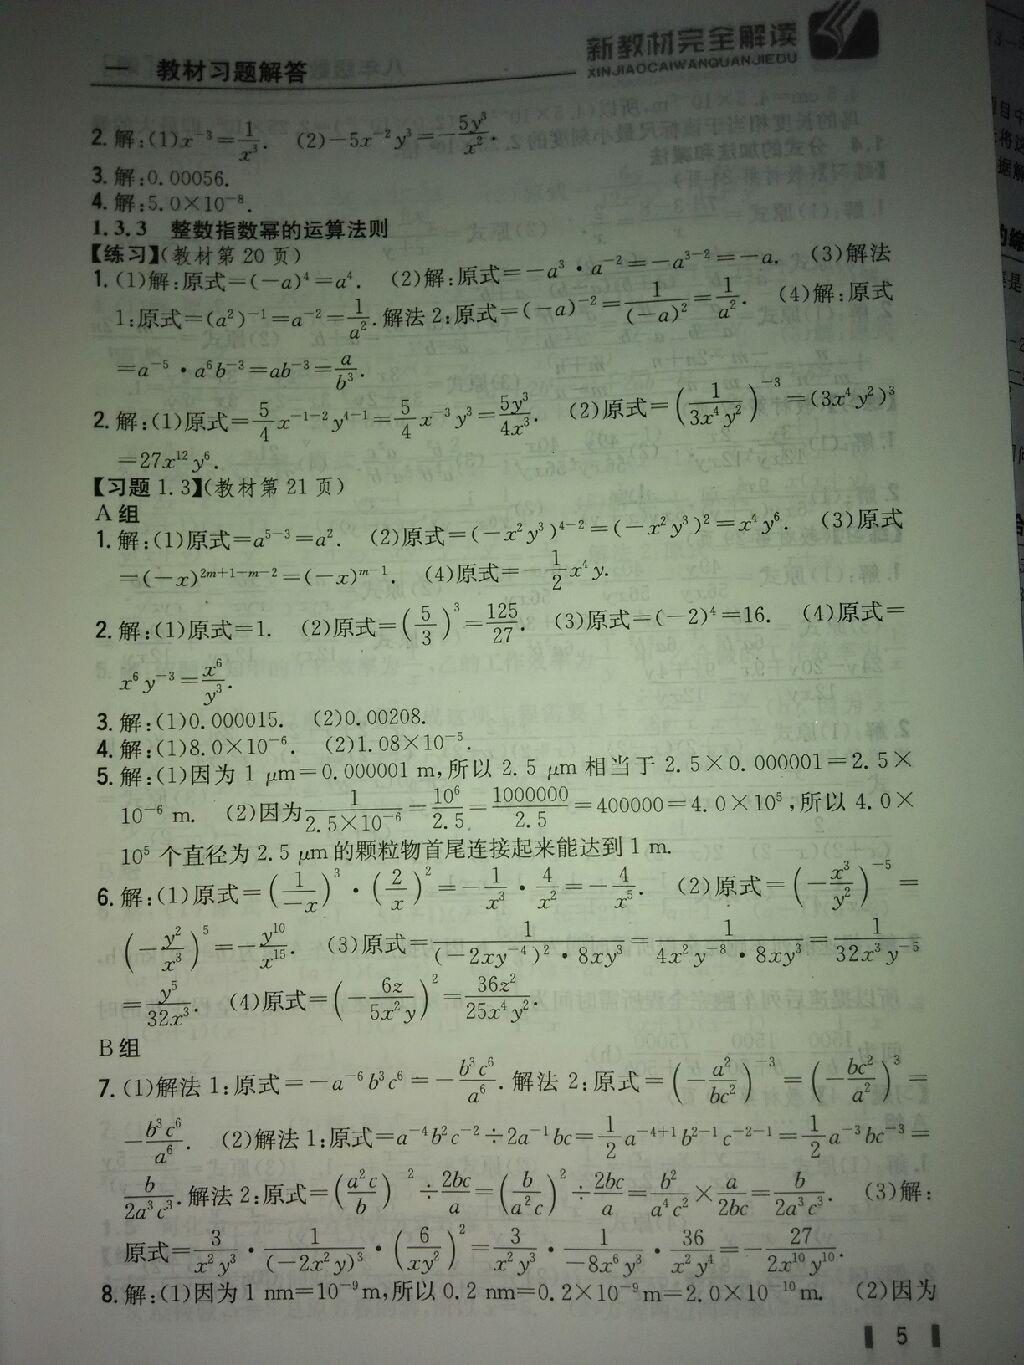 新教材完全解读
XINJIAOCAIWANQUANJIEDU
一 教材习题解答
2. 解:(1)x⁻³=1/x³. (2)-5x⁻²y³=-5y³/x².
3. 解:0.00056.
4. 解:5.0×10⁻⁸.
1.3.3 整数指数幂的运算法则
【练习】(教材第20页)
1. (1)解:原式=(-a)⁴=a⁴. (2)解:原式=-a³·a⁻²=-a³⁻²=-a. (3)解法
1:原式=(a²)⁻¹=a⁻²=1/a².解法2:原式=(-a)⁻²=1/(-a)²=1/a². (4)解:原式
=a⁻⁵·a⁶b⁻³=ab⁻³=a/b³.
2. 解:(1)原式=5/4 x⁻¹⁻²y⁴⁻¹=5/4 x⁻³y³=5y³/4x³. (2)原式=(1/3x⁴y²)⁻³=(3x⁴y²)³
=27x¹²y⁶.
【习题1.3】(教材第21页)
A组
1. 解:(1)原式=a⁵⁻³=a². (2)原式=(-x²y³)⁴⁻²=(-x²y³)²=x⁴y⁶. (3)原式
=(-x)²ᵐ⁺¹⁻ᵐ⁻²=(-x)ᵐ⁻¹. (4)原式=-1/2 x⁴y.
2. 解:(1)原式=1. (2)原式=(5/3)³=125/27. (3)原式=(-2)⁴=16. (4)原式=
x⁶y⁻³=x⁶/y³.
3. 解:(1)0.000015. (2)0.00208.
4. 解:(1)8.0×10⁻⁶. (2)1.08×10⁻⁵.
5. 解:(1)因为1 μm=0.000001 m,所以2.5 μm相当于2.5×0.000001=2.5×
10⁻⁶ m. (2)因为1/2.5×10⁻⁶=10⁶/2.5=1000000/2.5=400000=4.0×10⁵,所以4.0×
10⁵个直径为2.5 μm的颗粒物首尾连接起来能达到1 m.
6. 解:(1)原式=(1/-x)³·(2/x)²=-1/x³·4/x²=-4/x⁵. (2)原式=(-x³/y²)⁻⁵=
(-y²/x³)⁵=-y¹⁰/x¹⁵. (3)原式=1/(-2xy⁻⁴)²·8xy³=1/4x²y⁻⁸·8xy³=1/32x³y⁻⁵
=y⁵/32x³. (4)原式=(-6z/5x²y)²=36z²/25x⁴y².
B组
7. (1)解法1:原式=-a⁻⁶b³c⁶=-b³c⁶/a⁶.解法2:原式=(-a²/bc²)⁻³=(-bc²/a²)³=
-b³c⁶/a⁶. (2)解法1:原式=a⁻⁴b²c⁻²÷2a⁻¹bc=1/2 a⁻⁴⁺¹b²⁻¹c⁻²⁻¹=1/2 a⁻³bc⁻³=
b/2a³c³.解法2:原式=(a²c/b)⁻²÷2bc/a=(b/a²c)²÷2bc/a=b²/a⁴c²×a/2bc=b/2a³c³. (3)解:
原式=3/x²y³·1/(-2x²y)³·(6/xy²)²=3/x²y³·1/-8x⁶y³·36/x²y⁴=-27/2x¹⁰y¹⁰.
8. 解:(1)因为1 nm=10⁻⁹m,所以0.2 nm=0.2×10⁻⁹m=2.0×10⁻¹⁰m. (2)因为
5